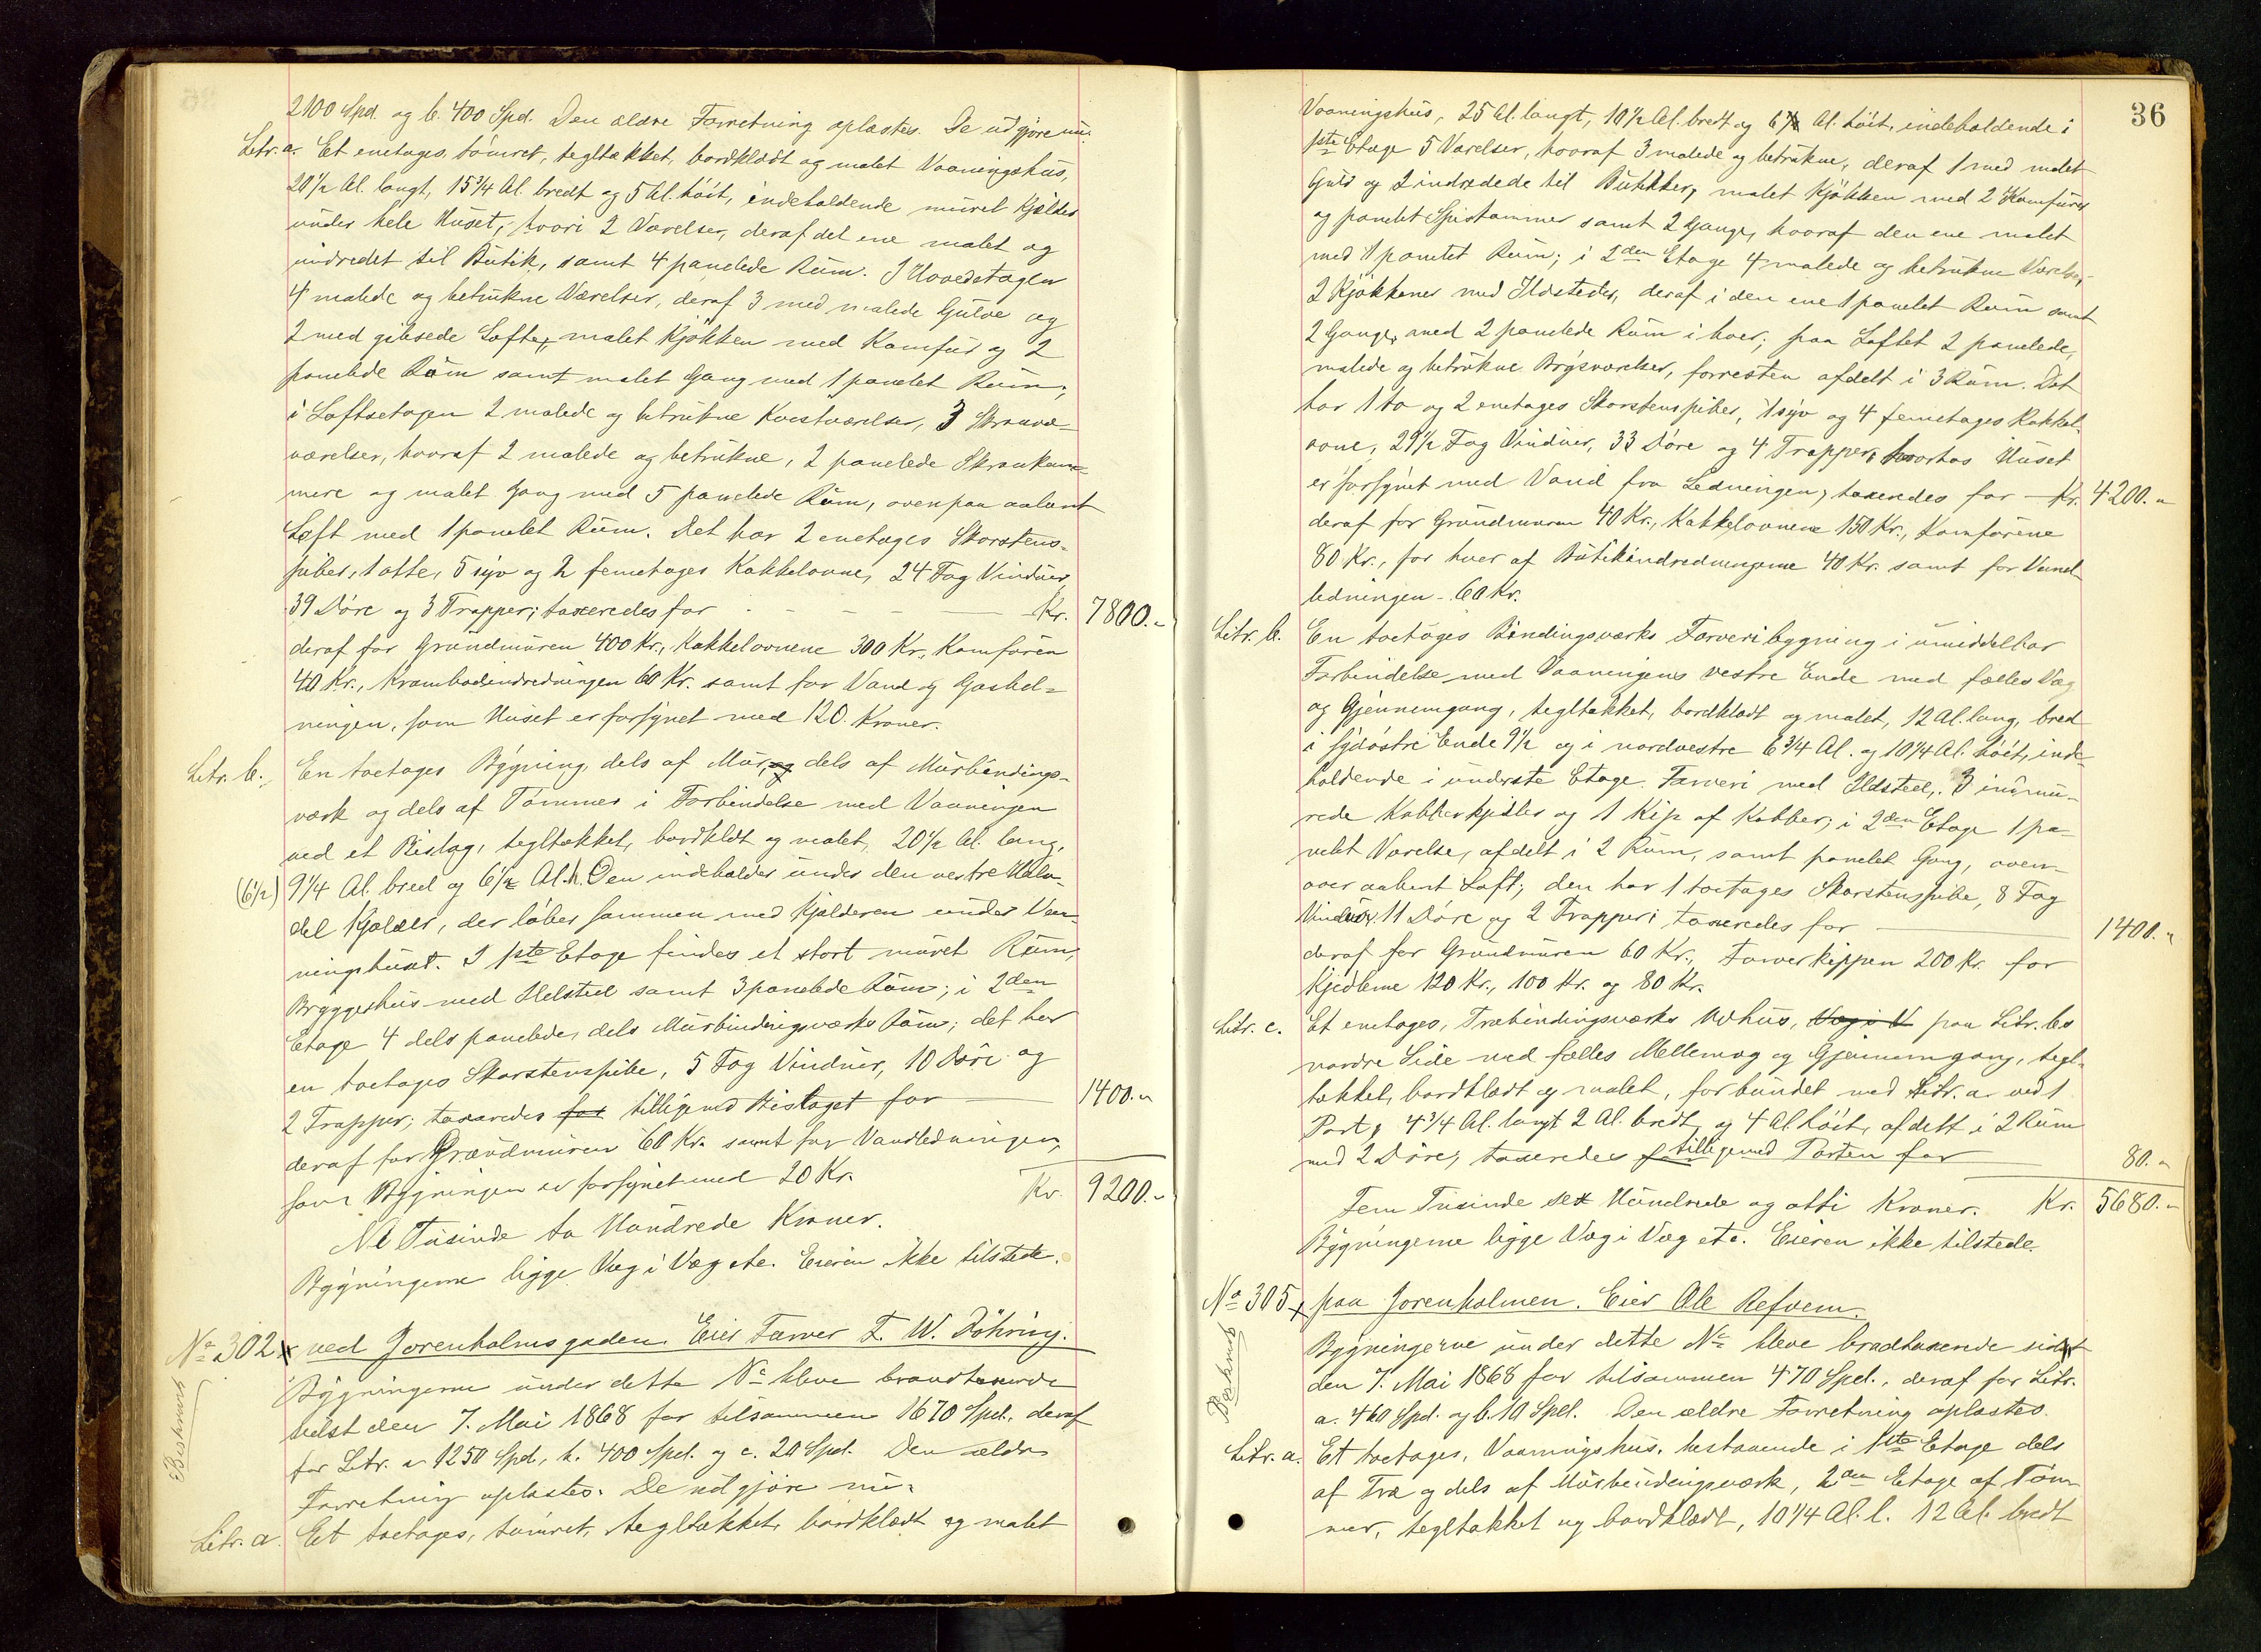 2100 Spd. og b. 400 Spd. Den ældre Forretning oplæstes. De udgjøre nu:
Litr. a. Et enetages, tømret, tegltækket, bordklædt og malet Vaaningshus,
20 1/2 Al. langt, 15 3/4 Al. bredt og 5 Al. høit, indeholdende muret Kjælder
under hele Huset, hvori 2 Værelser, deraf det ene malet og
indredet til Butik, samt 4 panelede Rum. I Hovedetagen
4 malede og betrukne Værelser, deraf 3 med malede Gulve og
2 med gibsede Lofter, malet Kjøkken med Komfur og 2
panelede Rum samt malet Gang med 1 panelet Rum;
i Loftsetagen 2 malede og betrukne Kvistværelser, 3 Skraa-
værelser, hvoraf 2 malede og betrukne, 2 panelede Skraakam-
mere og malet Gang med 5 panelede Rum, ovenpaa aabent
Loft med 1 panelet Rum. Det har 2 enetages Skorstens-
piber, 1 otte, 5 syv og 2 femetages Kakkelovne, 24 Fag Vinduer,
39 Døre og 3 Trapper; taxeredes for Kr. 7800.-
deraf for Grundmuren 400 Kr., Kakkelovnene 300 Kr., Komfuren
40 Kr., Krambodindredningen 60 Kr. samt for Vand og Gasled-
ningen, som Huset er forsynet med 120 Kroner.
Litr. b. En toetages Bygning, dels af Mur, og dels af Murbindings-
værk og dels af Tømmer i Forbindelse med Vaaningen
ved et Bislag, tegltækket, bordkldt og malet, 20 1/2 Al. lang,
(6 1/2) 9 1/4 Al. bred og 6 1/2 Al. h. Den indeholder under den vestre Halv-
del Kjælder, der løber sammen med Kjælderen under Vaa-
ningshuset. I 1ste Etage findes et stort muret Rum,
Bryggerhus med Ildsted samt 3 panelede Rum; i 2den
Etage 4 dels panelede, dels Murbindingsværks Rum; det har
en toetages Skorstenspibe, 5 Fag Vinduer, 10 Døre og
2 Trapper; taxeredes for tilligemed Bislaget for 1400.-
deraf for Grundmuren 60 Kr. samt for Vandledningen,
som Bygningen er forsynet med 20 Kr.
Kr. 9200.-
Ni Tusinde to Hundrede Kroner.
Bygningerne ligge Væg i Væg etc. Eieren ikke tilstede.
No 302 x ved Jorenholmsgaden. Eier Farver F. W. Döhring.
Beskrevet
Bygningerne under dette No bleve brandtaxerede
sidst den 7. Mai 1868 for tilsammen 1670 Spd., deraf
for Litr. a 1250 Spd., b. 400 Spd. og c. 20 Spd. Den ældre
Forretning oplæstes. De udgjøre nu:
Litr. a. Et toetages, tømret, tegltækket, bordklædt og malet
36
Vaaningshus, 25 Al. langt, 10 1/2 Al. bredt og 6 3/4 Al. høit, indeholdende i
1ste Etage 5 Værelser, hvoraf 3 malede og betrukne, deraf 1 med malet
Gulv og 2 indredede til Butikker, malet Kjøkken med 2 Komfurer
og panelet Spiskammer samt 2 Gange, hvoraf den ene malet
med 1 panelet Rum; i 2den Etage 4 malede og betrukne Værelser,
2 Kjøkkener med Ildsteder, deraf i den ene 1 panelet Rum samt
2 Gange, med 2 panelede Rum i hver; paa Loftet 2 panelede,
malede og betrukne Brystværelser, forresten afdelt i 3 Rum. Det
har 1 to og 2 enetages Skorstenspiber, 1 syv og 4 femetages Kakkel-
ovne, 29 1/2 Fag Vinduer, 33 Døre og 4 Trapper, hvorhos Huset
er forsynet med Vand fra Ledningen, taxeredes for Kr. 4200.-
deraf for Grundmuren 40 Kr., Kakkelovnene 150 Kr., Komfurene
80 Kr., for hver af Butikindredningerne 40 Kr. samt for Vand-
ledningen 60 Kr.
Litr. b. En toetages Bindingsværks Farveribygning i umiddelbar
Forbindelse med Vaaningens vestre Ende med fælles Væg
og Gjennemgang, tegltækket, bordklædt og malet, 12 Al. lang, bred
i sydøstre Ende 9 1/2 og i nordvestre 6 3/4 Al. og 10 1/4 Al. høit, inde-
holdende i underste Etage Farveri med Ildsted, 3 indmu-
rede Kobberkjedler og 1 Kip af Kobber; i 2den Etage 1 pa-
nelet Værelse, afdelt i 2 Rum, samt panelet Gang, oven-
over aabent Loft; den har 1 toetages Skorstenspibe, 8 Fag
Vinduer, 11 Døre og 2 Trapper; taxeredes for 1400.-
deraf for Grundmuren 60 Kr., Farverkippen 200 Kr. for
Kjedlerne 120 Kr., 100 Kr. og 80 Kr.
Litr. c. Et enetages, Træbindingsværks Udhus, Væg i V paa Litr. bs
nordre Side med fælles Mellemvæg og Gjennemgang, tegl-
tækket, bordklædt og malet, forbundet med Litr. a ved 1
Port, 4 3/4 Al. langt 2 Al. bredt og 4 Al. høit, afdelt i 2 Rum
med 2 Døre; taxeredes tilligemed Porten for 80.-
Fem Tusinde sex Hundrede og otti Kroner. Kr. 5680.-
Bygningerne ligge Væg i Væg etc. Eieren ikke tilstede.
No 305 x paa Jorenholmen. Eier Ole Refvem.
Beskrevet
Bygningerne under dette No bleve brandtaxerede sidst
den 7. Mai 1868 for tilsammen 470 Spd., deraf for Litr.
a. 460 Spd. og b. 10 Spd. Den ældre Forretning oplæstes.
Litr. a. Et toetages, Vaaningshus, bestaaende i 1ste Etage dels
af Træ og dels af Murbindingsværk, 2den Etage af Tøm-
mer, tegltækket og bordklædt, 10 1/4 Al. l. 12 Al. bredt